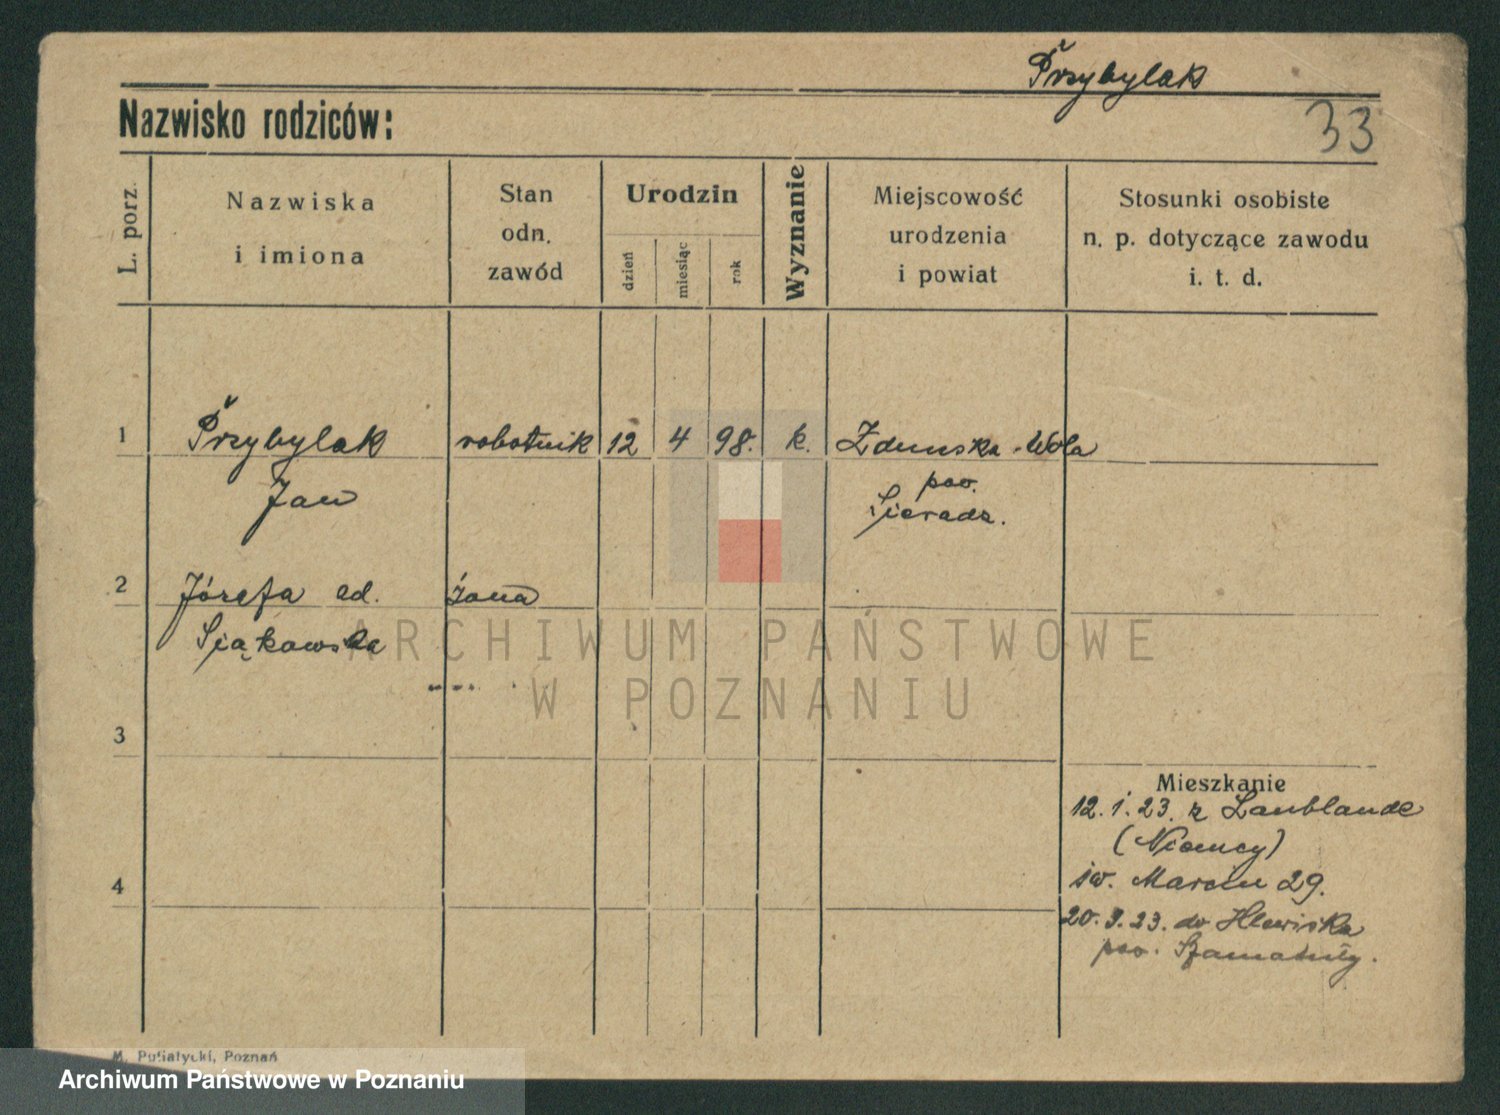 Přzybylak
Nazwisko rodziców:
33
L. porz.
Nazwiska
i imiona
Stan
odn.
zawód
Urodzin
dzień
miesiąc
rok
Wyznanie
Miejscowość
urodzenia
i powiat
Stosunki osobiste
n. p. dotyczące zawodu
i. t. d.
1 Přzybylak robotnik 12 4 98. k. Zduńska-Wola
Jan
pow.
Sieradz.
2 Józefa żona
Siąkowska
ARCHIWUM PAŃSTWOWE
W POZNANIU
3
Mieszkanie
12.1.23. z
(Niemcy)
św. Marcin 29.
4
20.9.23. do
pow. Szamotuły.
M. Pusiatycki, Poznań
Archiwum Państwowe w Poznaniu